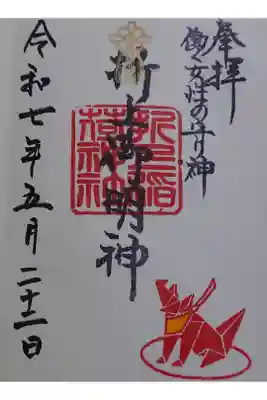 奉拝
働く女性の守り神
折上御明神
折上稲荷神社
令和七年五月二十二日